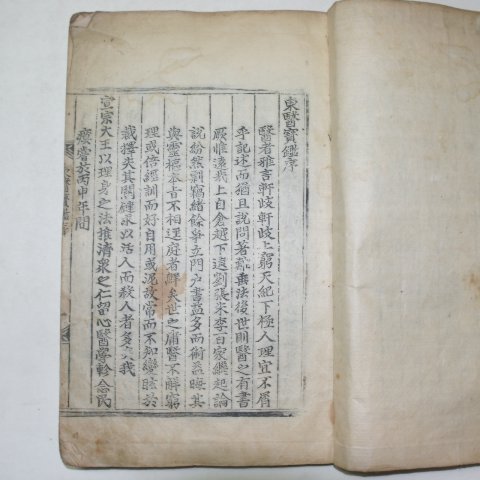 東醫寶鑑序
醫者雅言軒岐軒岐上窮天紀下極人理宜不屑
乎記述而猶且說問著難垂法後世則醫之有書
厥惟遠哉上自倉越下逮劉張朱李百家繼起論
說紛然剽竊緖餘爭立門戶書益多而術益晦其
與靈樞本旨不相逕庭者鮮矣世之庸醫不解窮
理或倍經訓而好自用或泥故常而不知變眩於
裁擇失其關鍵求以活人而殺人者多矣我
宣宗大王以理身之法推濟衆之仁留心醫學軫念民
瘼嘗於丙申年間